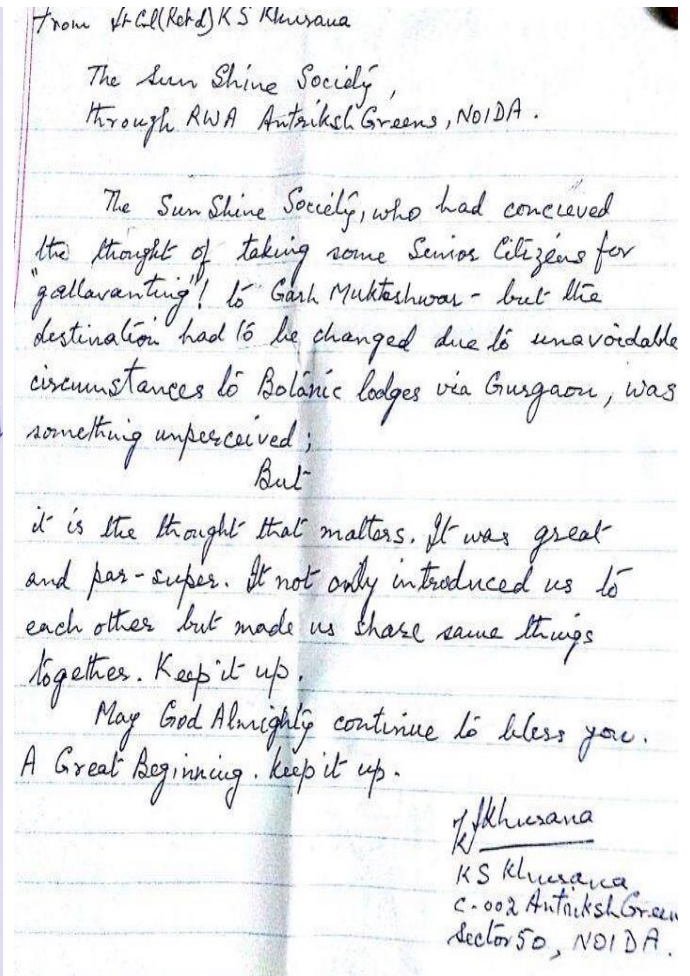 From Lt Col (Retd) K S Khurana
The Sun Shine Society,
through RWA Antriksh Greens, NOIDA.
The Sun Shine Society, who had concieved
the thought of taking some Senior Citizens for
"gallavanting"! to Garh Mukteshwar - but the
destination had to be changed due to unavoidable
circumstances to Botanic lodges via Gurgaon, was
something unperceived;
But
it is the thought that matters. It was great
and par-super. It not only introduced us to
each other but made us share same things
together. Keep it up.
May God Almighty continue to bless you.
A Great Beginning. Keep it up.
KS Khurana
KS Khurana
C-002 Antriksh Green
Sector 50, NOIDA.